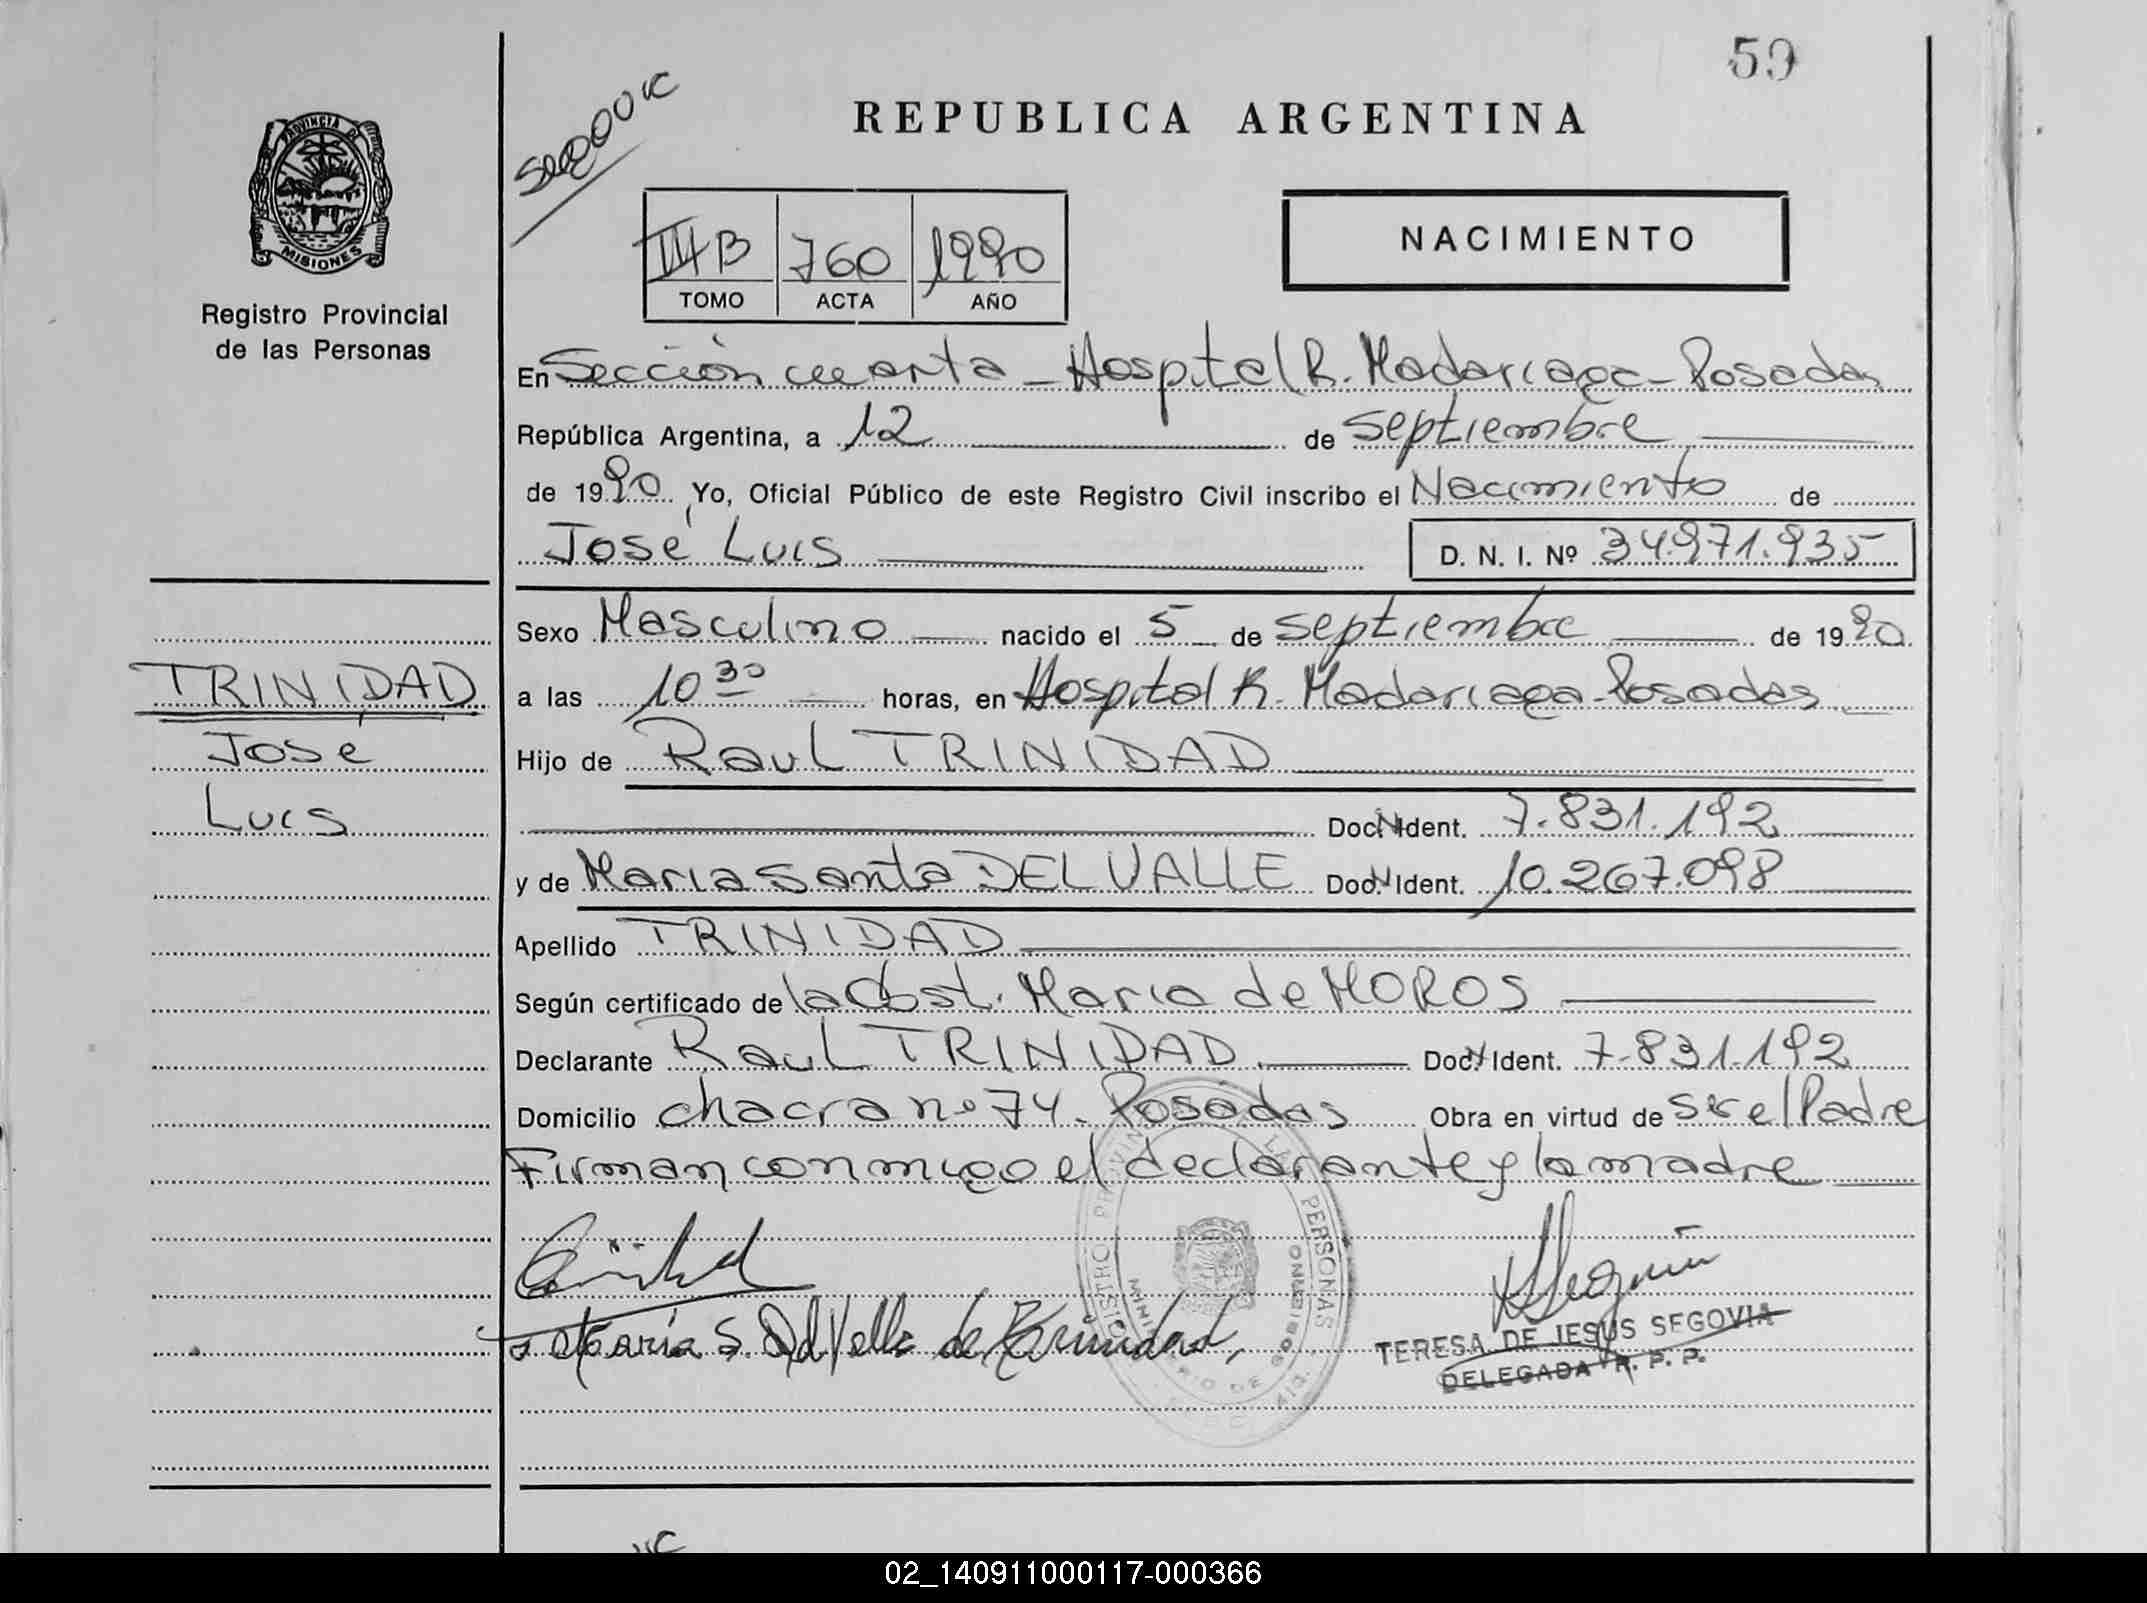 59
REPUBLICA ARGENTINA
PROVINCIA DE
MISIONES
Registro Provincial
de las Personas
NACIMIENTO
III B 760 1990
TOMO ACTA AÑO
En Sección cuarta - Hospital R. Madariaga - Posadas
República Argentina, a 12 de Septiembre
de 1990. Yo, Oficial Público de este Registro Civil inscribo el Nacimiento de
José Luis D. N. I. Nº 34.971.935
Sexo Masculino nacido el 5 de Septiembre de 1990.
TRINIDAD
José
Luis
a las 10 30 horas, en Hospital R. Madariaga - Posadas
Hijo de Raul TRINIDAD
Doc. N Ident. 7.831.192
y de Maria Santa DEL VALLE Doc. N Ident. 10.267.098
Apellido TRINIDAD
Según certificado de la Obst. Maria de MOROS
Declarante Raul TRINIDAD Doc. N Ident. 7.831.192
Domicilio chacra nº 74. Posadas Obra en virtud de Ser el Padre
Firman conmigo el declarante y la madre
Maria S. Del Valle de Trinidad
REGISTRO PROVINCIAL DE LAS PERSONAS
MINISTERIO DE GOBIERNO
TERESA DE JESUS SEGOVIA
DELEGADA R. P. P.
02_140911000117-000366